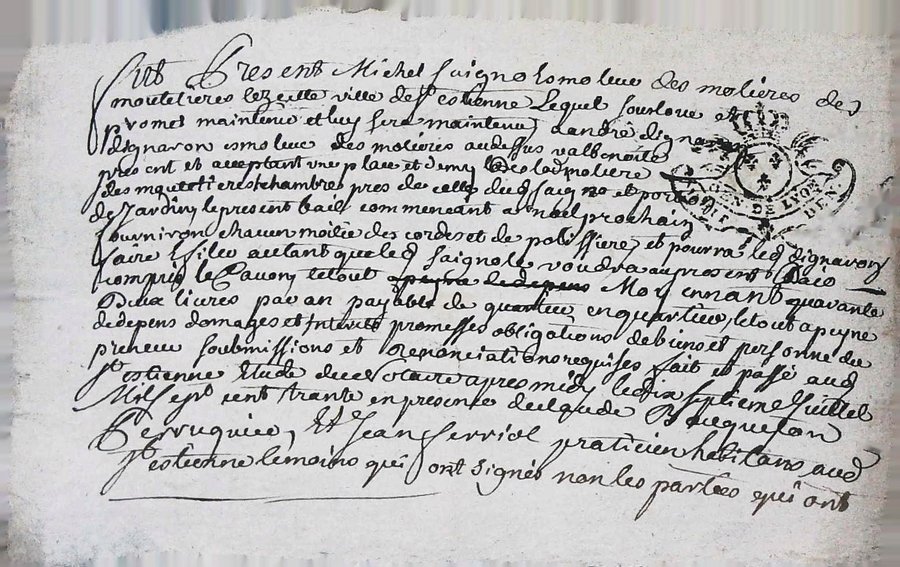 fut Present Michel Saignol esmoleur des molieres des
moutetieres lez cette ville de St estienne Lequel sousloue et
promet maintenir et luy fera maintenir a andré dignaron
dignaron esmoleur des molieres audessus valbenoite
present et acceptant une place et demy de lad moliere
des moutetieres chambre pres de celle dud Saignol et portion
de Jardin, le present bail commencant a noel prochain
fourniron chacun moitié des cordes et de polissiere, et pourra led dignaron
faire esfiler autant que led Saignol voudra au present bail
compris le Savon, le tout Moyennant quarante
Deux livres par an payable de quartier en quartier, le tout a peyne
de depens domages et Interets promesses obligations de biens et personne du
preneur soubmissions et Renonciations requises fait et passé aud
St estienne Etude du Notaire apres midy le dix septieme Juillet
Mil Sept cent trante en presence de Perruquier, Et Jean praticien habitans aud
St estienne temoins qui ont signés non les parties qui ont
GEN DE LYON